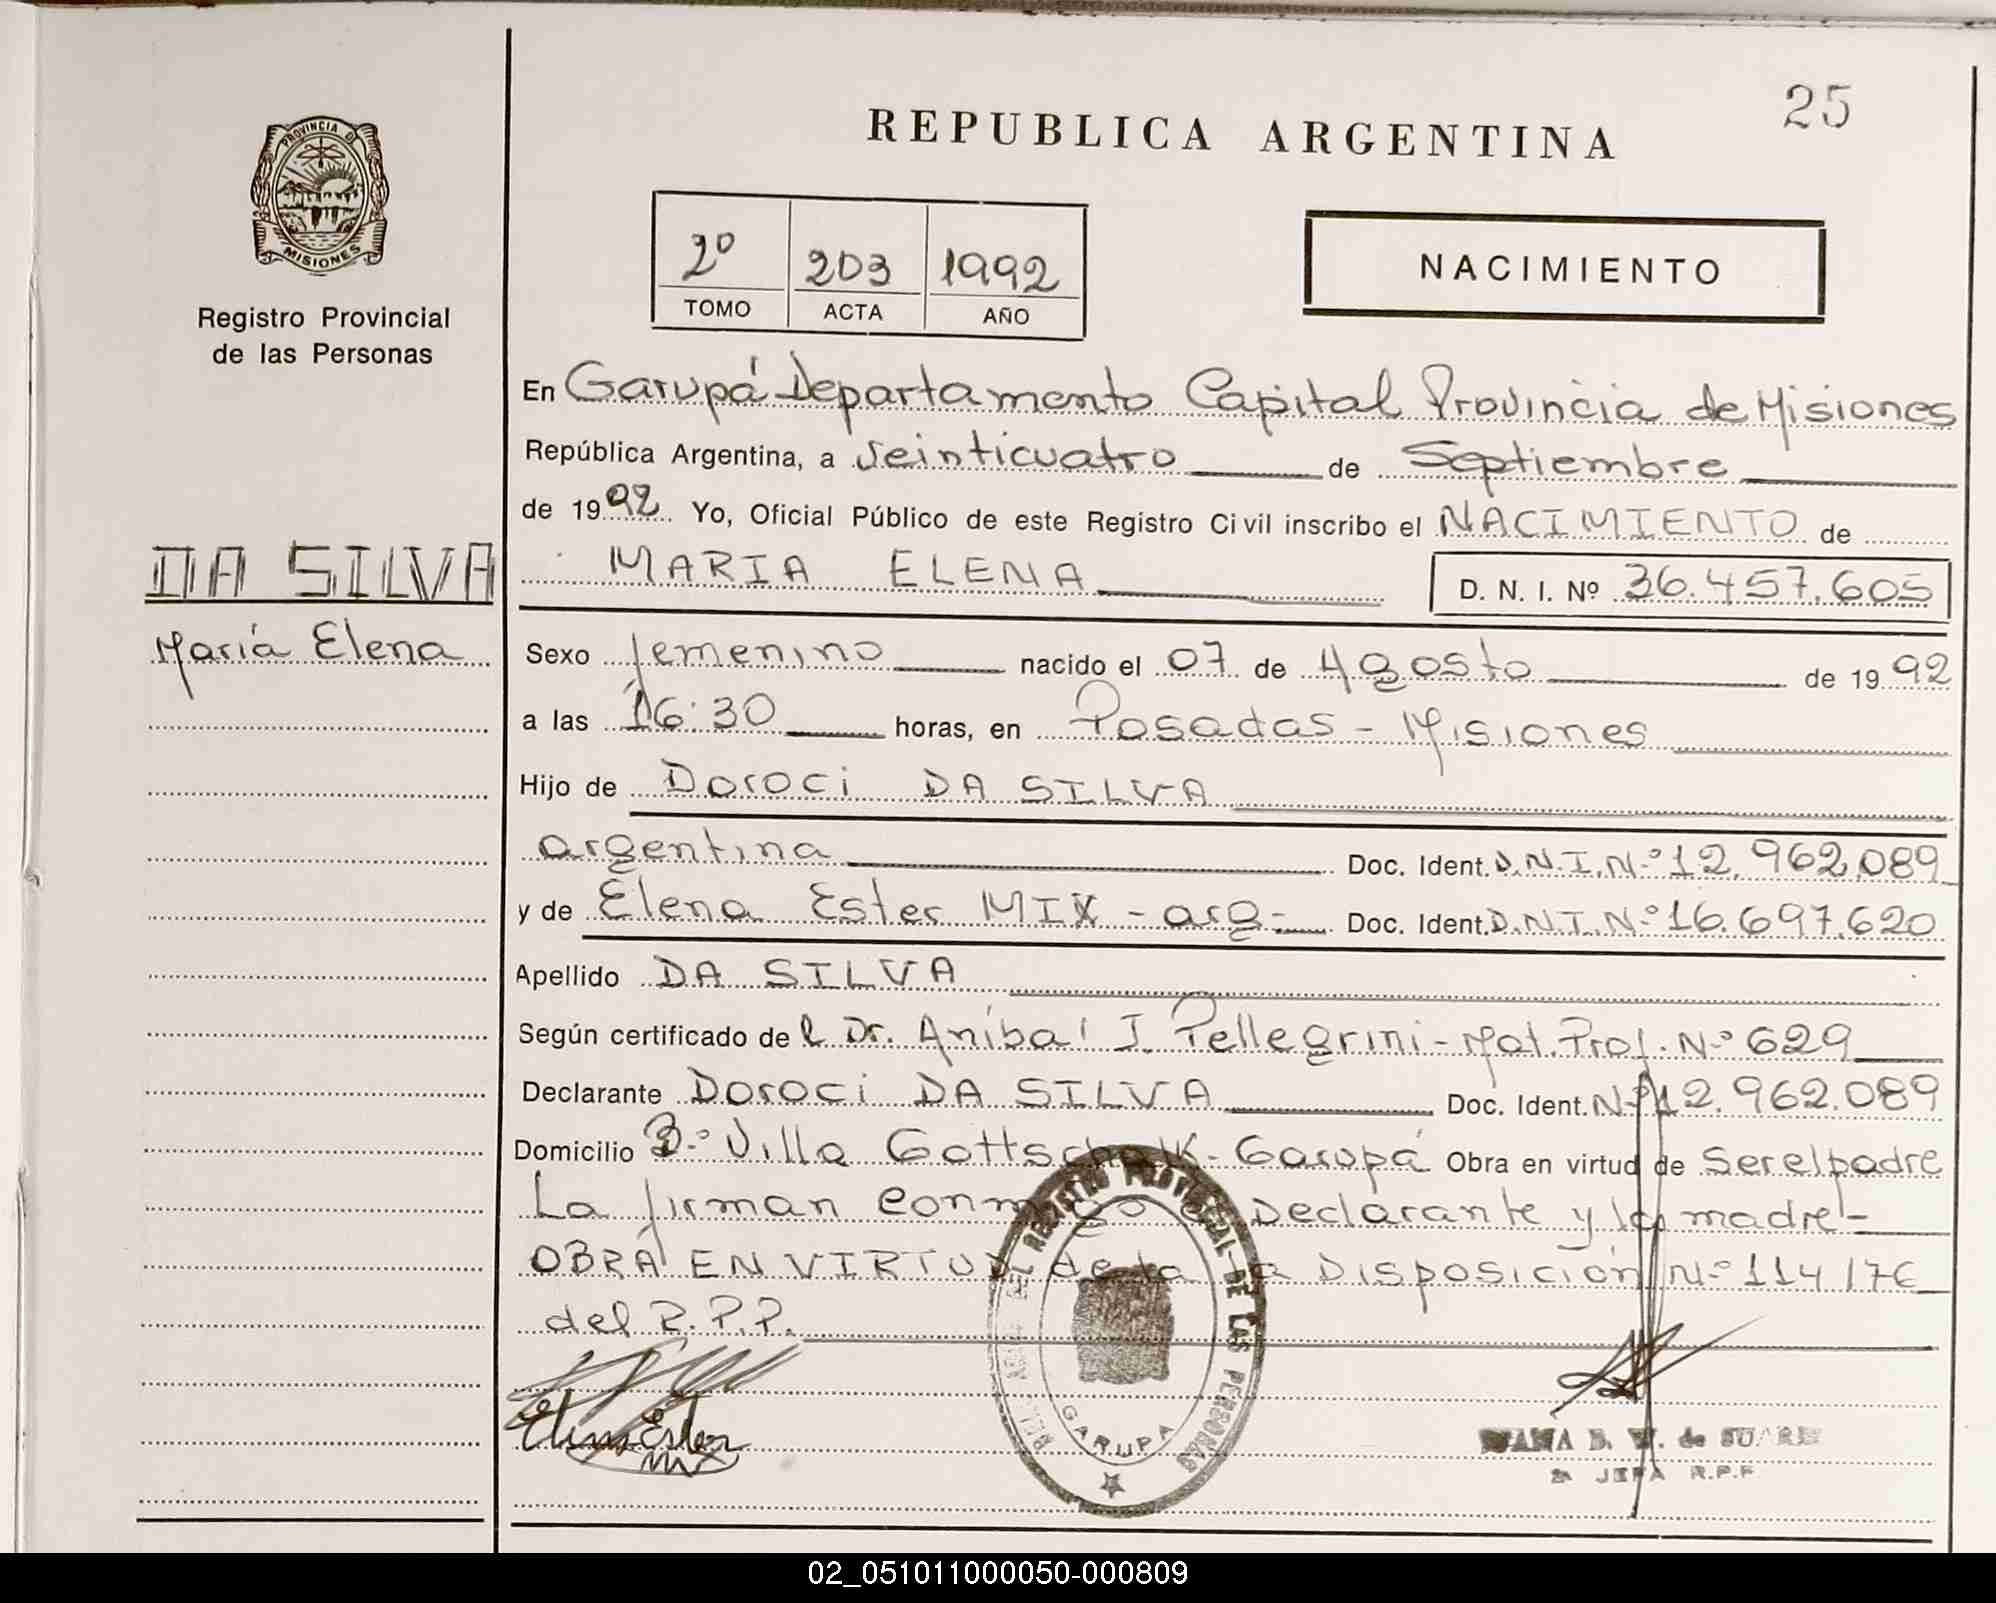 25
REPUBLICA ARGENTINA
PROVINCIA DE
MISIONES
Registro Provincial
de las Personas
2º 203 1992
TOMO ACTA AÑO
NACIMIENTO
En Garupá Departamento Capital Provincia de Misiones
República Argentina, a Veinticuatro de Septiembre
de 1992 Yo, Oficial Público de este Registro Civil inscribo el NACIMIENTO de
DA SILVA
María Elena
MARIA ELENA D. N. I. Nº 36.457.605
Sexo femenino nacido el 07 de Agosto de 1992
a las 16:30 horas, en Posadas - Misiones
Hijo de Doroci DA SILVA
argentina Doc. Ident. D.N.I.Nº 12.962.089
y de Elena Ester MIX - arg- Doc. Ident. D.N.I.Nº 16.697.620
Apellido DA SILVA
Según certificado de l Dr. Aníbal J. Pellegrini - Mat. Prof. Nº 629
Declarante Doroci DA SILVA Doc. Ident. Nº 12.962.089
Domicilio Bº Villa Gottschalk - Garupá Obra en virtud de Ser el padre
La firman conmigo Declarante y la madre-
OBRA EN VIRTUD de la Disposición Nº 114/76
del R.P.P.
REGISTRO PROVINCIAL DE LAS PERSONAS
GARUPA
Elena Ester
Mix
B. W. de SUAREZ
JEFA R.P.P
02_051011000050-000809